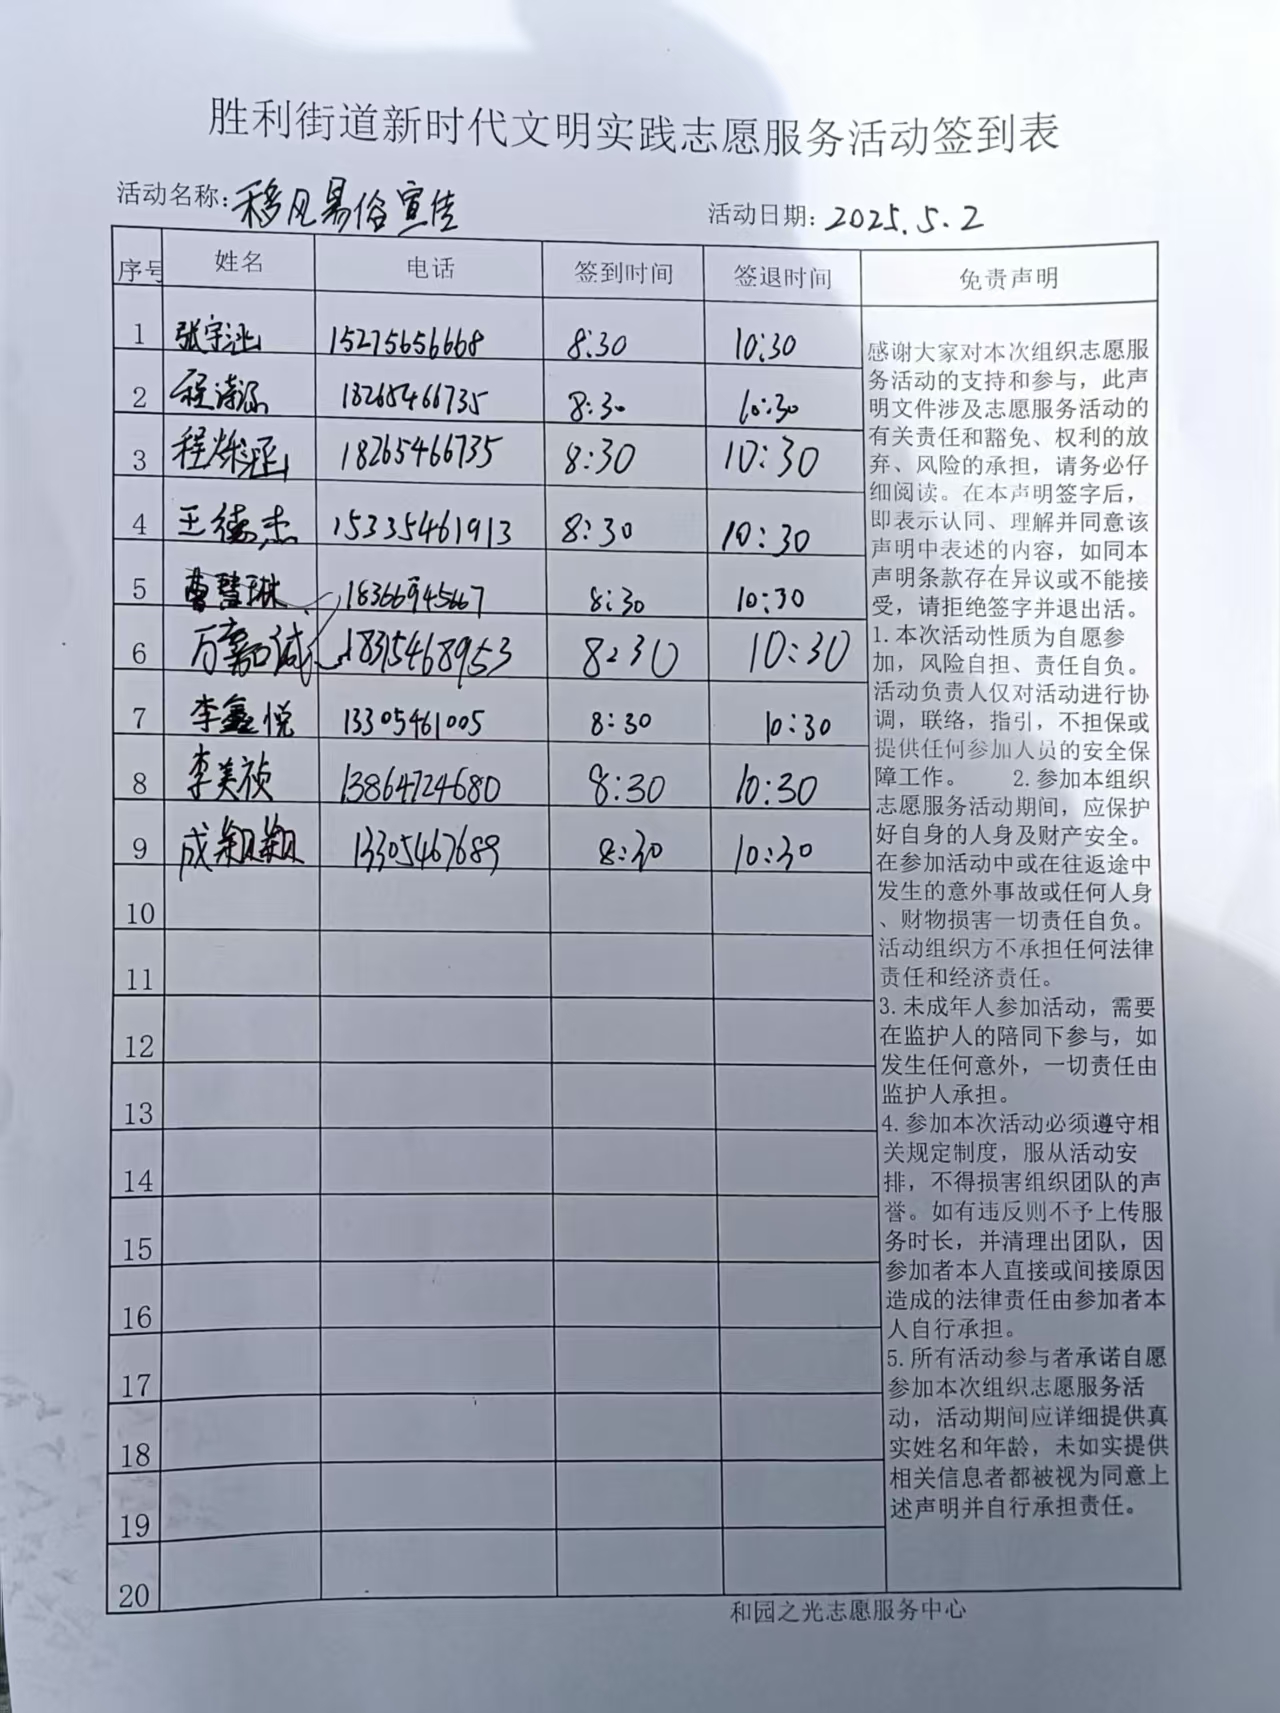 胜利街道新时代文明实践志愿服务活动签到表
活动名称：移风易俗宣传
活动日期：2025.5.2
序号 姓名 电话 签到时间 签退时间 免责声明
1 张宇涵 15275656668 8:30 10:30
2 程诗涵 18265466735 8:30 10:30
3 程烁涵 18265466735 8:30 10:30
4 王德杰 15335461913 8:30 10:30
5 曹慧琳 18366945667 8:30 10:30
6 万嘉诚 18315468953 8:30 10:30
7 李鑫悦 13305461005 8:30 10:30
8 李美祯 13864724680 8:30 10:30
9 成翔翔 13305467689 8:30 10:30
10
11
12
13
14
15
16
17
18
19
20
感谢大家对本次组织志愿服
务活动的支持和参与，此声
明文件涉及志愿服务活动的
有关责任和豁免、权利的放
弃、风险的承担，请务必仔
细阅读。在本声明签字后，
即表示认同、理解并同意该
声明中表述的内容，如同本
声明条款存在异议或不能接
受，请拒绝签字并退出活。
1.本次活动性质为自愿参
加，风险自担、责任自负。
活动负责人仅对活动进行协
调，联络，指引，不担保或
提供任何参加人员的安全保
障工作。 2.参加本组织
志愿服务活动期间，应保护
好自身的人身及财产安全。
在参加活动中或在往返途中
发生的意外事故或任何人身
、财物损害一切责任自负。
活动组织方不承担任何法律
责任和经济责任。
3.未成年人参加活动，需要
在监护人的陪同下参与，如
发生任何意外，一切责任由
监护人承担。
4.参加本次活动必须遵守相
关规定制度，服从活动安
排，不得损害组织团队的声
誉。如有违反则不予上传服
务时长，并清理出团队，因
参加者本人直接或间接原因
造成的法律责任由参加者本
人自行承担。
5.所有活动参与者承诺自愿
参加本次组织志愿服务活
动，活动期间应详细提供真
实姓名和年龄，未如实提供
相关信息者都被视为同意上
述声明并自行承担责任。
和园之光志愿服务中心